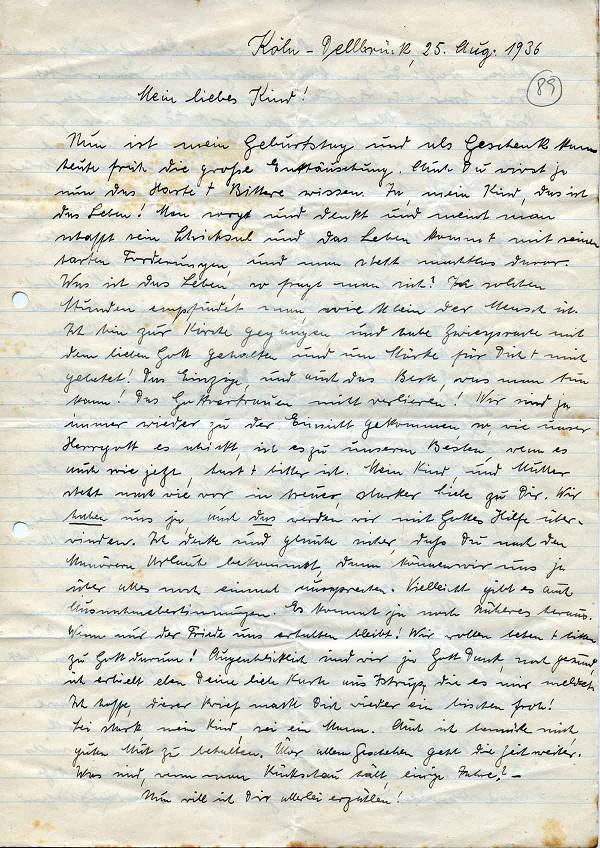 Köln - Dellbrück, 25. Aug. 1936
89
Mein liebes Kind!
Nun ist mein Geburtstag und als Geschenk kam
heute früh die große Enttäuschung. Auch Du wirst ja
nun das Harte + Bittere wissen. Ja, mein Kind, das ist
das Leben! Man sorgt und denkt und meint man
schafft sein Schicksal und das Leben kommt mit seinen
harten Forderungen, und man steht machtlos davor.
Was ist das Leben, so fragt man sich? In solchen
Stunden empfindet man, wie klein der Mensch ist.
Ich bin zur Kirche gegangen und habe Zwiesprache mit
dem lieben Gott gehalten und um Stärke für Dich + mich
gebetet! Das Einzige, und auch das Beste, was man tun
kann! Das Gottvertrauen nicht verlieren! Wir sind ja
immer wieder zu der Einsicht gekommen so, wie unser
Herrgott es schickt, ist es zu unserem Besten, wenn es
auch wie jetzt, hart + bitter ist. Mein Kind, und Mutter
steht nach wie vor in treuer, starker Liebe zu Dir. Wir
haben uns ja, auch das werden wir mit Gottes Hilfe über-
winden. Ich denke und glaube sicher, daß Du nach den
Manövern Urlaub bekommst, dann können wir uns ja
über alles noch einmal aussprechen. Vielleicht gibt es auch
Ausnahmebestimmungen. Es kommt ja noch Näheres heraus.
Wenn nur der Friede uns erhalten bleibt! Wir wollen beten + bitten
zu Gott darum! Augenblicklich sind wir ja Gott Dank, noch gesund,
ich erhielt eben Deine liebe Karte aus Istrup, die es mir meldet.
Ich hoffe, dieser Brief macht Dich wieder ein bischen froh!
Sei stark mein Kind, sei ein Mann. Auch ich bemühe mich
guten Mut zu behalten. Über allem Geschehen geht die Zeit weiter.
Was sind, wenn man Rückschau hält, einige Jahre? -
Nun will ich Dir allerlei erzählen!